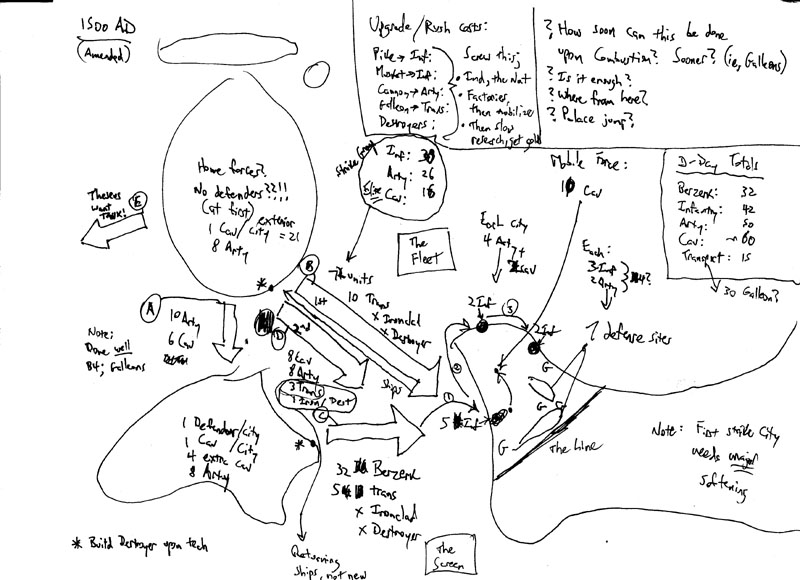 1500 AD
(Amended)
Upgrade/Rush costs:
Pike → Inf:
Musket → Inf:
Cannon → Arty:
Galleon → Trans:
Destroyers:
Screw this;
• Ind, the Nat
• Factories, then mobilize
• Then slow research, get gold
? How soon can this be done
upon Combustion? Sooner? (ie, Galleons)
? Is it enough?
? Where from here?
? Palace jump?
Home forces?
No defenders??!!!
(at first)
1 Cav/ exterior
city = 21
8 Arty
Inf: 30
Arty: 26
Elite Cav: 18
Mobile Force:
10 Cav
D-Day Totals
Berzerk: 32
Infantry: 42
Arty: 50
Cav: ~60
Transport: 15
30 Galleon?
E
Theseus
want
TANK!
The
Fleet
Each city
4 Arty
Each:
3 Inf
2 Arty
A
10 Arty
6 Cav
Note:
Done well
B4; Galleons
B
1st
10 Trans
x Ironclad
x Destroyer
D
2nd
8 Cav
8 Arty
3 Trans
1 Iron/Dest
ships
C
2 Inf
3
2 Inf
7 defense sites
2
1
5 Inf
G
G
G
G
The Line
1 Defender/city
1 Cav/City
4 extra Cav?
8 Arty
32 Berzerk
5 trans
x Ironclad
x Destroyer
Note: First strike City
needs major
softening
* Build Destroyer upon tech
Returning
ships, not new
The
Screen